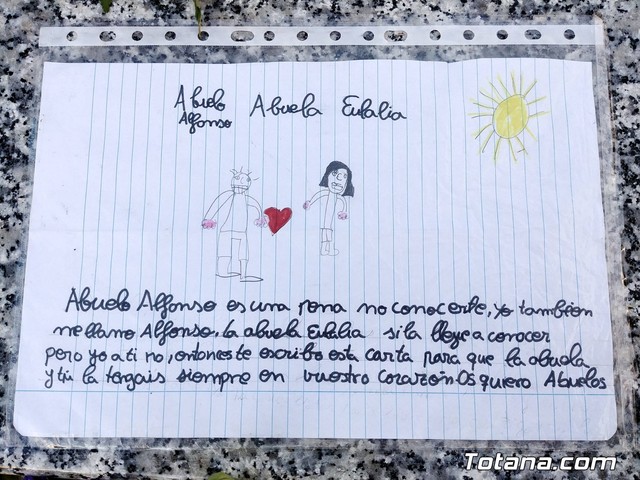 Abuelo Abuela Eulalia
Alfonso
Abuelo Alfonso es una pena no conocerte, yo tambien
me llamo Alfonso. la abuela Eulalia si la llege a conocer
pero yo a ti no, entonces te escribo esta carta para que la abuela
y tú la tengais siempre en vuestro corazón. Os quiero Abuelos
Totana.com